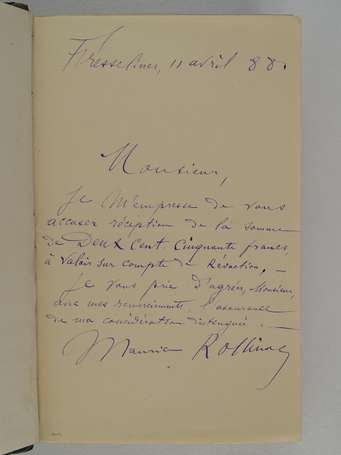 Fresselines, 11 avril 88.
Monsieur,
Je M'empresse de vous
accuser réception de la somme
de Deux Cent Cinquante francs,
à Valoir sur compte de Rédaction, —
Je vous prie d'agréer, Monsieur,
avec mes remerciements, l'assurance
de ma considération distinguée. —
Maurice Rollinat